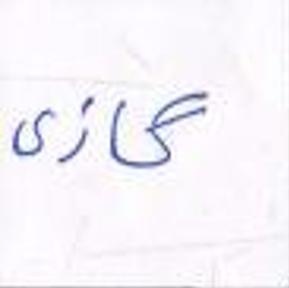 گازی